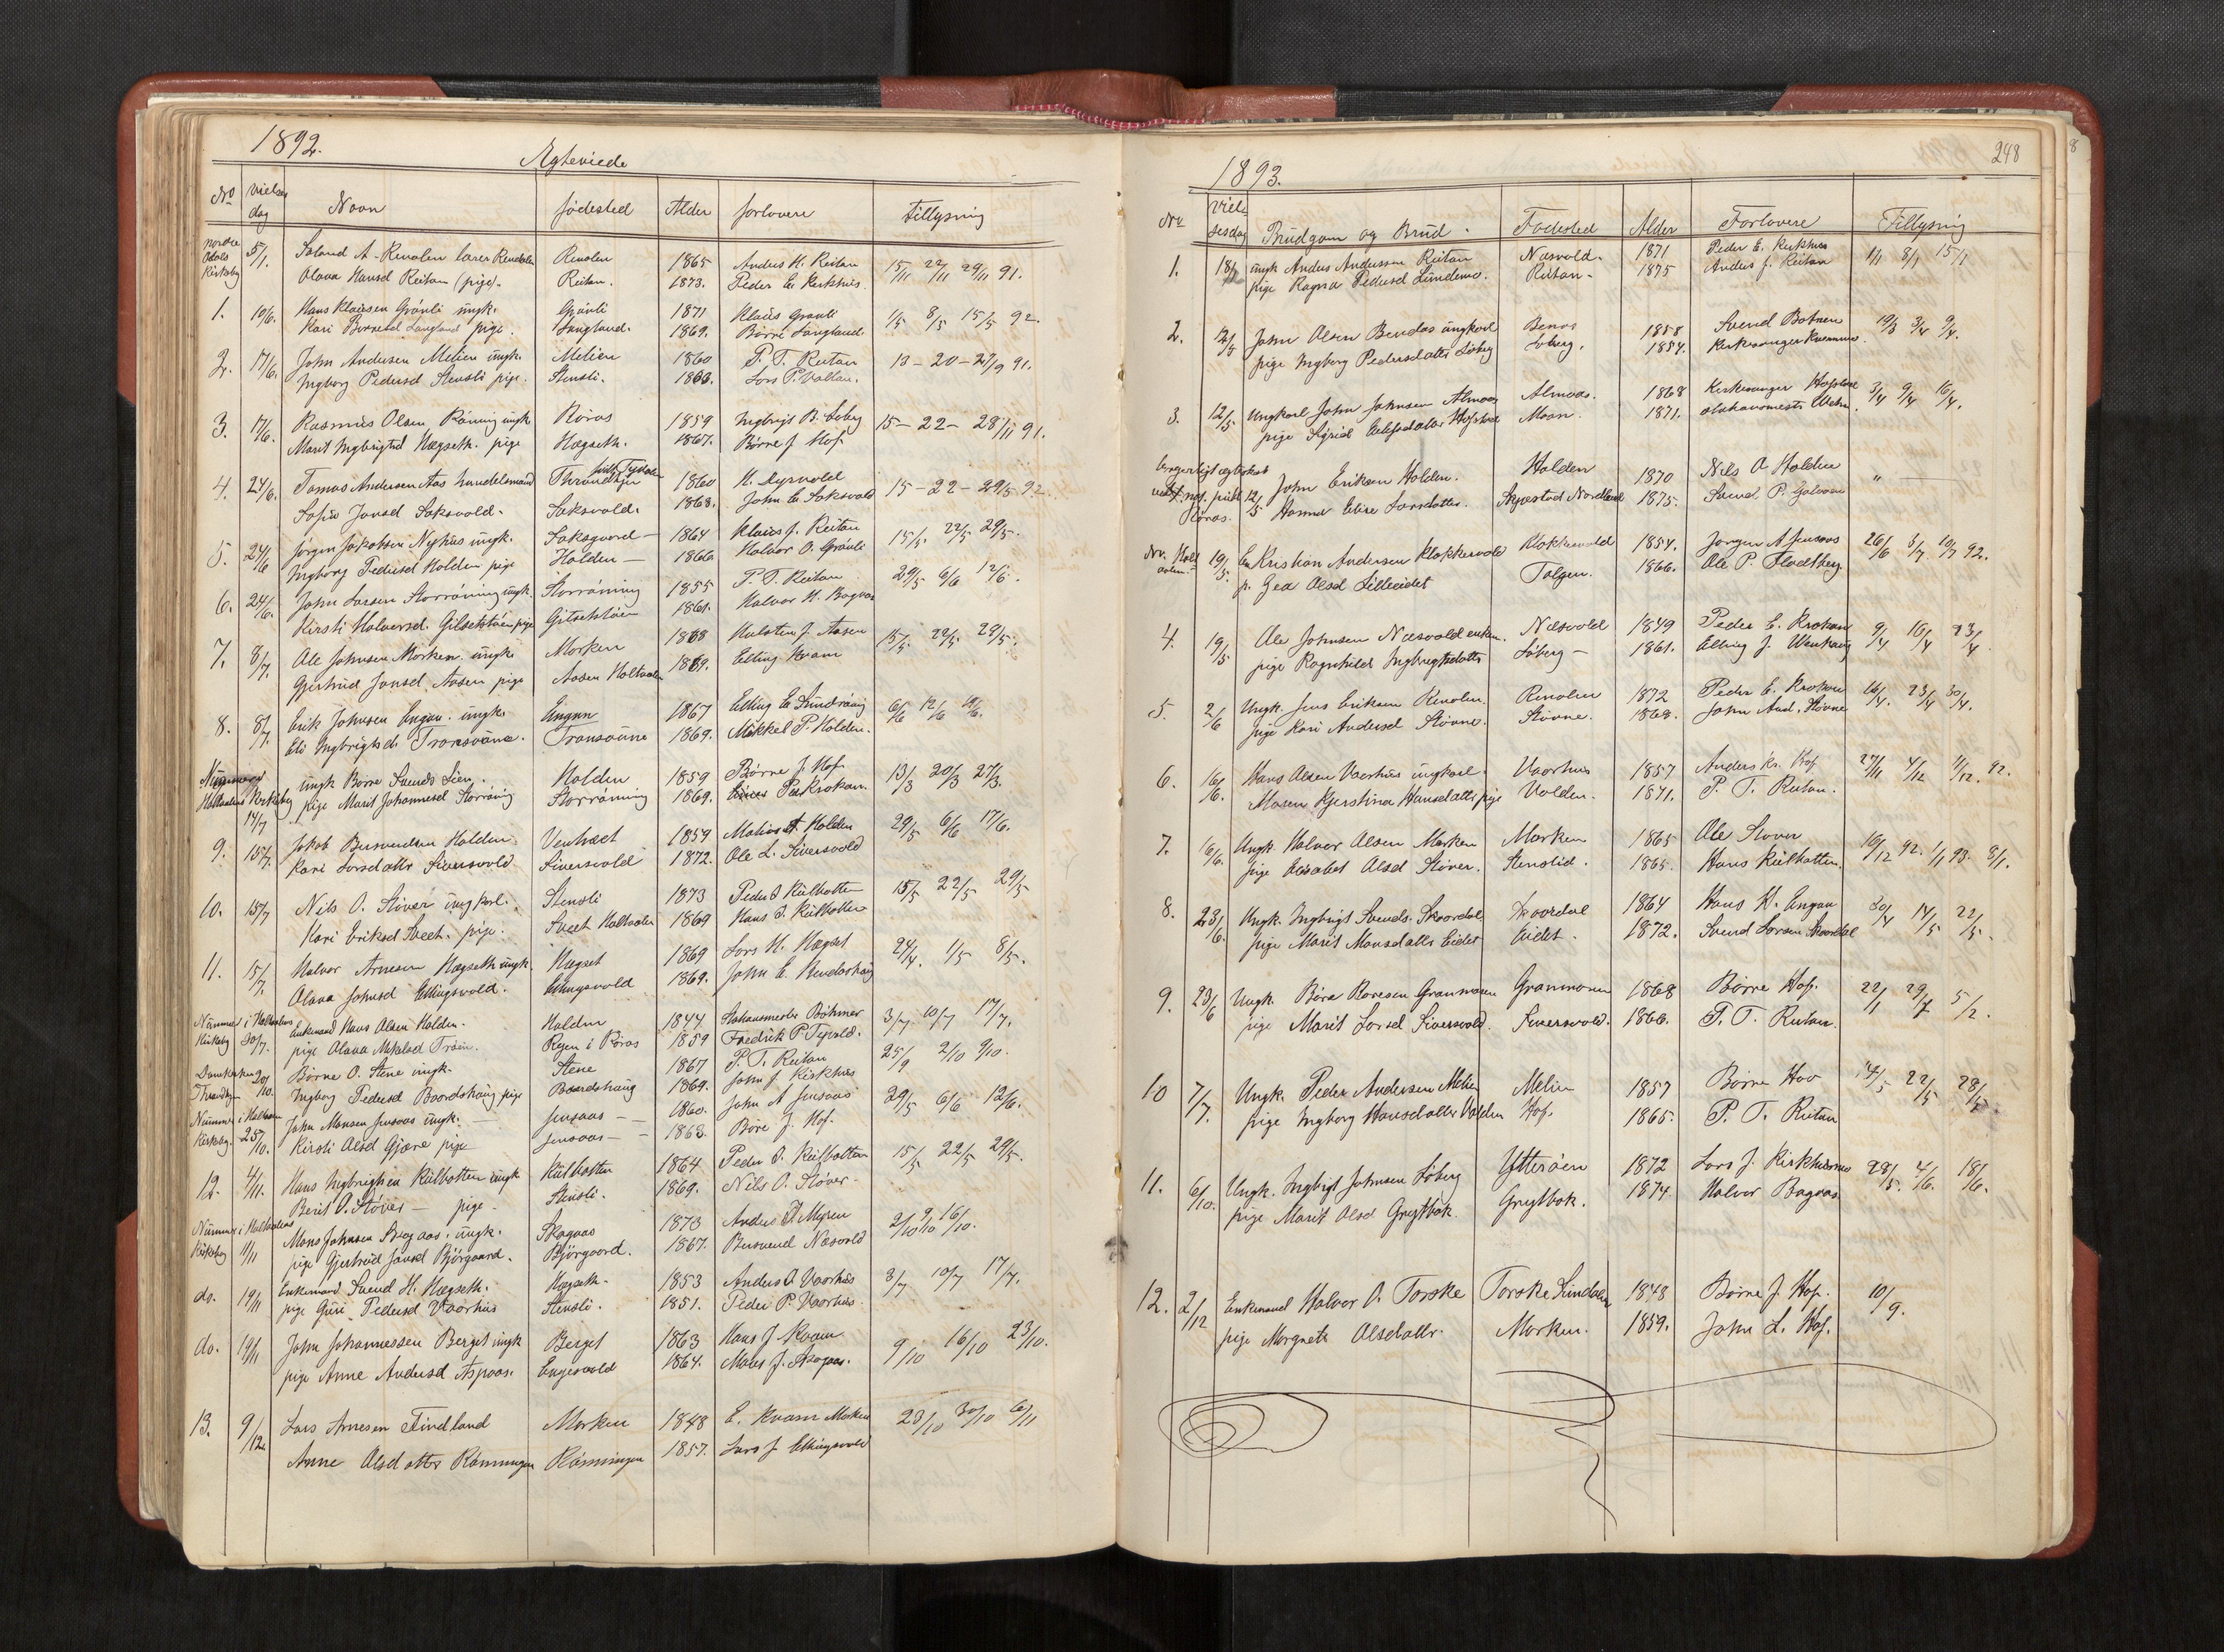 1892.
Ægteviede
No Vielses dag Navn fødested Alder forlovere tillysning
nordre Odals Kirkeby 5/1. A. Renolen lærer Rendalen Renolen 1865 Anders H. Reitan 15/11 22/11 29/11 91.
Olava Hansd Reitan (pige). Reitan. 1873. Peder E. Kirkhus.
1. 10/6. Hans Klausen Grønli ungk. Grønli 1871 Klaus Grønli 1/5 8/5 15/5 92.
Kari Børresd Langland pige. Langland. 1869. Børre Langland
2. 17/6. John Andersen Melien ungk. Melien 1860 P. T. Reitan 13-20-27/9 91.
Ingborg Pedersd Stensli pige. Stensli. 1866. Lars P. Volden.
3. 17/6. Rasmus Olsen Röning ungk Röros 1859 Ingbrigt B. Löberg 15-22-28/11 91.
Marit Ingbrigtsd Hægseth. pige Hægseth. 1867. Børre J Hof
4. 24/6. Tomas Andersen Aas handelsmand Throndhjem 1860 K. Dyrvold 15-22-29/5 92
Sofie Jonsd Saksvold. Saksvold. 1868. John E Saksvold
5. 24/6 Jørgen Jakobsen Nyhus ungk. Saksgaard 1864 Klaus J. Reitan 15/5. 22/5 29/5.
Ingborg Pedersd Holden pige Holden 1866 Halvor O. Grønli
6. 24/6. John Larsen Storröning ungk. Storröning 1855 P. T. Reitan 29/5 6/6 12/6.
Kirsti Halvorsd. Gilsetstöen pige Gilsetstöen 1861. Halvor H. Bogvas
7. 8/7. Ole Johnsen Morken ungk. Morken 1868 Halsten J. Aasen 15/5. 22/5 29/5.
Gjertrud Jonsd. Aasen pige Aasen Holtaalen 1869. Elling Kvam
8. 8/7. Erik Johnsen Engan. ungk. Engan 1867 Elling E. Sundröning 6/6 12/6 19/6.
Eli Ingbrigtsd. Tronsoune. Tronsoune 1869. Mikkel P. Holden.
Holtaalens Kirkeby 14/7 ungk Börre Svends Lien. Holden 1859 Børre J. Hof 13/3 20/3 27/3.
pige Marit Johannesd Storröning Storröning 1869. Per Krokan.
9. 15/7. Jakob Holden 1859 Holden 29/5 6/6 17/6.
Kari Larsdatter Siversvold Siversvold 1872. Ole L. Siversvold
10. 15/7 Nils O. Stöver ungkarl. Stensli 1873 Peder I Kulbotten 15/5 22/5 29/5
Kari Eriksd Svect. pige. Svect Holtaalen 1869 Hans I. Kulbotten
11. 15/7. Halvor Arnesen Hægseth ungk. Hægset 1869 Lars H. Hægset 24/4. 1/5 8/5.
Olava Johnsd Ellingsvold. Ellingsvold 1869. John E.
Nummer i Holtaalens Kirkeby 20/7. Enkemand Hans Olsen Holden. Holden 1844 Böhmer 3/7 10/7 17/7.
pige Olava Trøen. i Röros 1859 Fredrik P.
Domkirken Throndhjem 20/10. Börre O. Stene ungk. Stene 1867 P. T. Reitan 25/9 2/10 9/10.
Ingborg Pedersd Baardshaug pige Baardshaug 1869. John J. Kirkhus
Nummer i Holtaalen Kirkeby. 25/10. John Monsen Jensaas ungk. Jensaas 1860. John A Jensaas 29/5 6/6 12/6.
Kirsti Olsd Gjære pige Jensaas 1863. Børe J. Hof.
12. 4/11. Hans Ingbrigtsen Kulbotten ungk Kulbotten 1864 Peder I. Kulbotten 15/5 22/5 29/5.
Berit O. Stöver pige. Stensli. 1869. Nils O. Stöver.
Nummer i Holtaalens Kirkeby 11/11 Mons Johnsen Skogaas. ungk. Skogaas 1873 Anders J. Myren 2/10 9/10 16/10.
pige Gjertrud Jonsd Björgaard. Björgaard. 1867. Næsvold
do. 19/11 Enkemand Svend H. Hægseth. Hægseth. 1853 Anders O Vaarhus 3/7 10/7 17/7.
pige Guri Pedersd Vaarhus Stensli. 1851. Peder P. Vaarhus
do. 19/11 John Johannessen Berget ungk Berget 1863 Hans J Kvam 9/10 16/10 23/10.
pige Anne Andersd Aspaas. Engesvold 1864. Mons J. Skogaas.
13. 9/12. Lars Arnesen Findland Morken 1848 E. Kvam Morken 23/10 30/10 6/11
Anne Olsdatter Rönningen Rönningen 1857. Lars J Ellingsvold
248
1893.
No Vielsesdag Brudgom og Brud. Fødested Alder Forlovere Tillysning
1. 18/1 ungk Anders Andersen Reitan Næsvold. 1871 Peder E. Kirkhus 1/1 8/1 15/1
pige Ragna Pedersd Lundemo. Reitan 1875 Anders J. Reitan
2. 12/5 John Olsen Bendos ungkarl Benos 1858 Svend Botnen 19/3 3/4 9/4
pige Ingborg Pedersdatter Löberg Löberg. 1854. Kirkesanger
3. 12/5 Ungkarl John Johnsen Almaas Almaas. 1868 Kirkesanger Hofstad 3/4 9/4 16/4.
pige Sigrid Hofstad Moan. 1871.
borgerligt ægteskab Röros. 12/5 John Eriksen Holden. Holden 1870 Nils A Holden "
Hanna Elise Larsdatter. Nordland 1875. Svend P.
19/5. Kristian Andersen Klokkervold Klokkervold 1854. Jørgen A Jensaas 26/6 3/7 10/7 92.
p. Gea Olsd Lilleeidet Tolgen. 1866. Ole P. Flodtberg
4. 19/5 Ole Johnsen Næsvold enkem. Næsvold 1849 Peder E. Krokan 9/4 16/4 23/4.
pige Ragnhild Ingbrigtsdatter Löberg 1861. Elling J. Wenhaug
5. 2/6 Ungk. Jens Eriksen Renolen. Renolen 1872 Peder E. Krokan 16/4. 23/4 30/4.
pige Kari Andersd Stövne. Stövne. 1868. John And. Stövne
6. 16/6. Hans Olsen Vaarhus ungkarl. Vaarhus 1857 Anders Kr. Hof 27/11 4/12 11/12. 92.
Maren Kjerstina Hansdatter pige Volden. 1871. P. T. Reitan.
7. 16/6. Ungk. Halvor Olsen Morken Morken 1865 Ole Stöver 16/12 92. 1/1 93. 8/1.
pige Elisabet Olsd Stöver. Stenslid. 1865. Hans Kulbotten
8. 23/6. Ungk. Ingbrigt Svends. Skaardal Skaardal 1864 Hans H. Engan 30/4 14/5 22/5.
pige Marit Monsdatter Eidet Eidet. 1872. Svend Larsen Skaardal
9. 23/6 Ungk. Börre Børesen Granmoen Granmoen 1868 Børre Hof. 22/1 29/1 5/2.
pige Marit Larsd Siversvold. Siversvold. 1866. P. T. Reitan.
10 7/7. Ungk. Peder Andersen Melien Melien 1857 Børre Hov 14/5 22/5 28/5
pige Ingborg Hansdatter Volden Hof. 1865. P. T. Reitan
11. 6/10. Ungk. Ingbrigt Johnsen Löberg Ytterøen 1872 Lars J. Kirkhusmo 28/5. 4/6. 18/6.
pige Marit Olsd Grytbak. Grytbak. 1874. Halvor Bogvas
12. 2/12 Enkemand Halvor O. Torske Torske Sundalen 1848 Børre J. Hof. 10/9.
pige Margrete Olsdatter. Morken. 1859. John L. Hof.